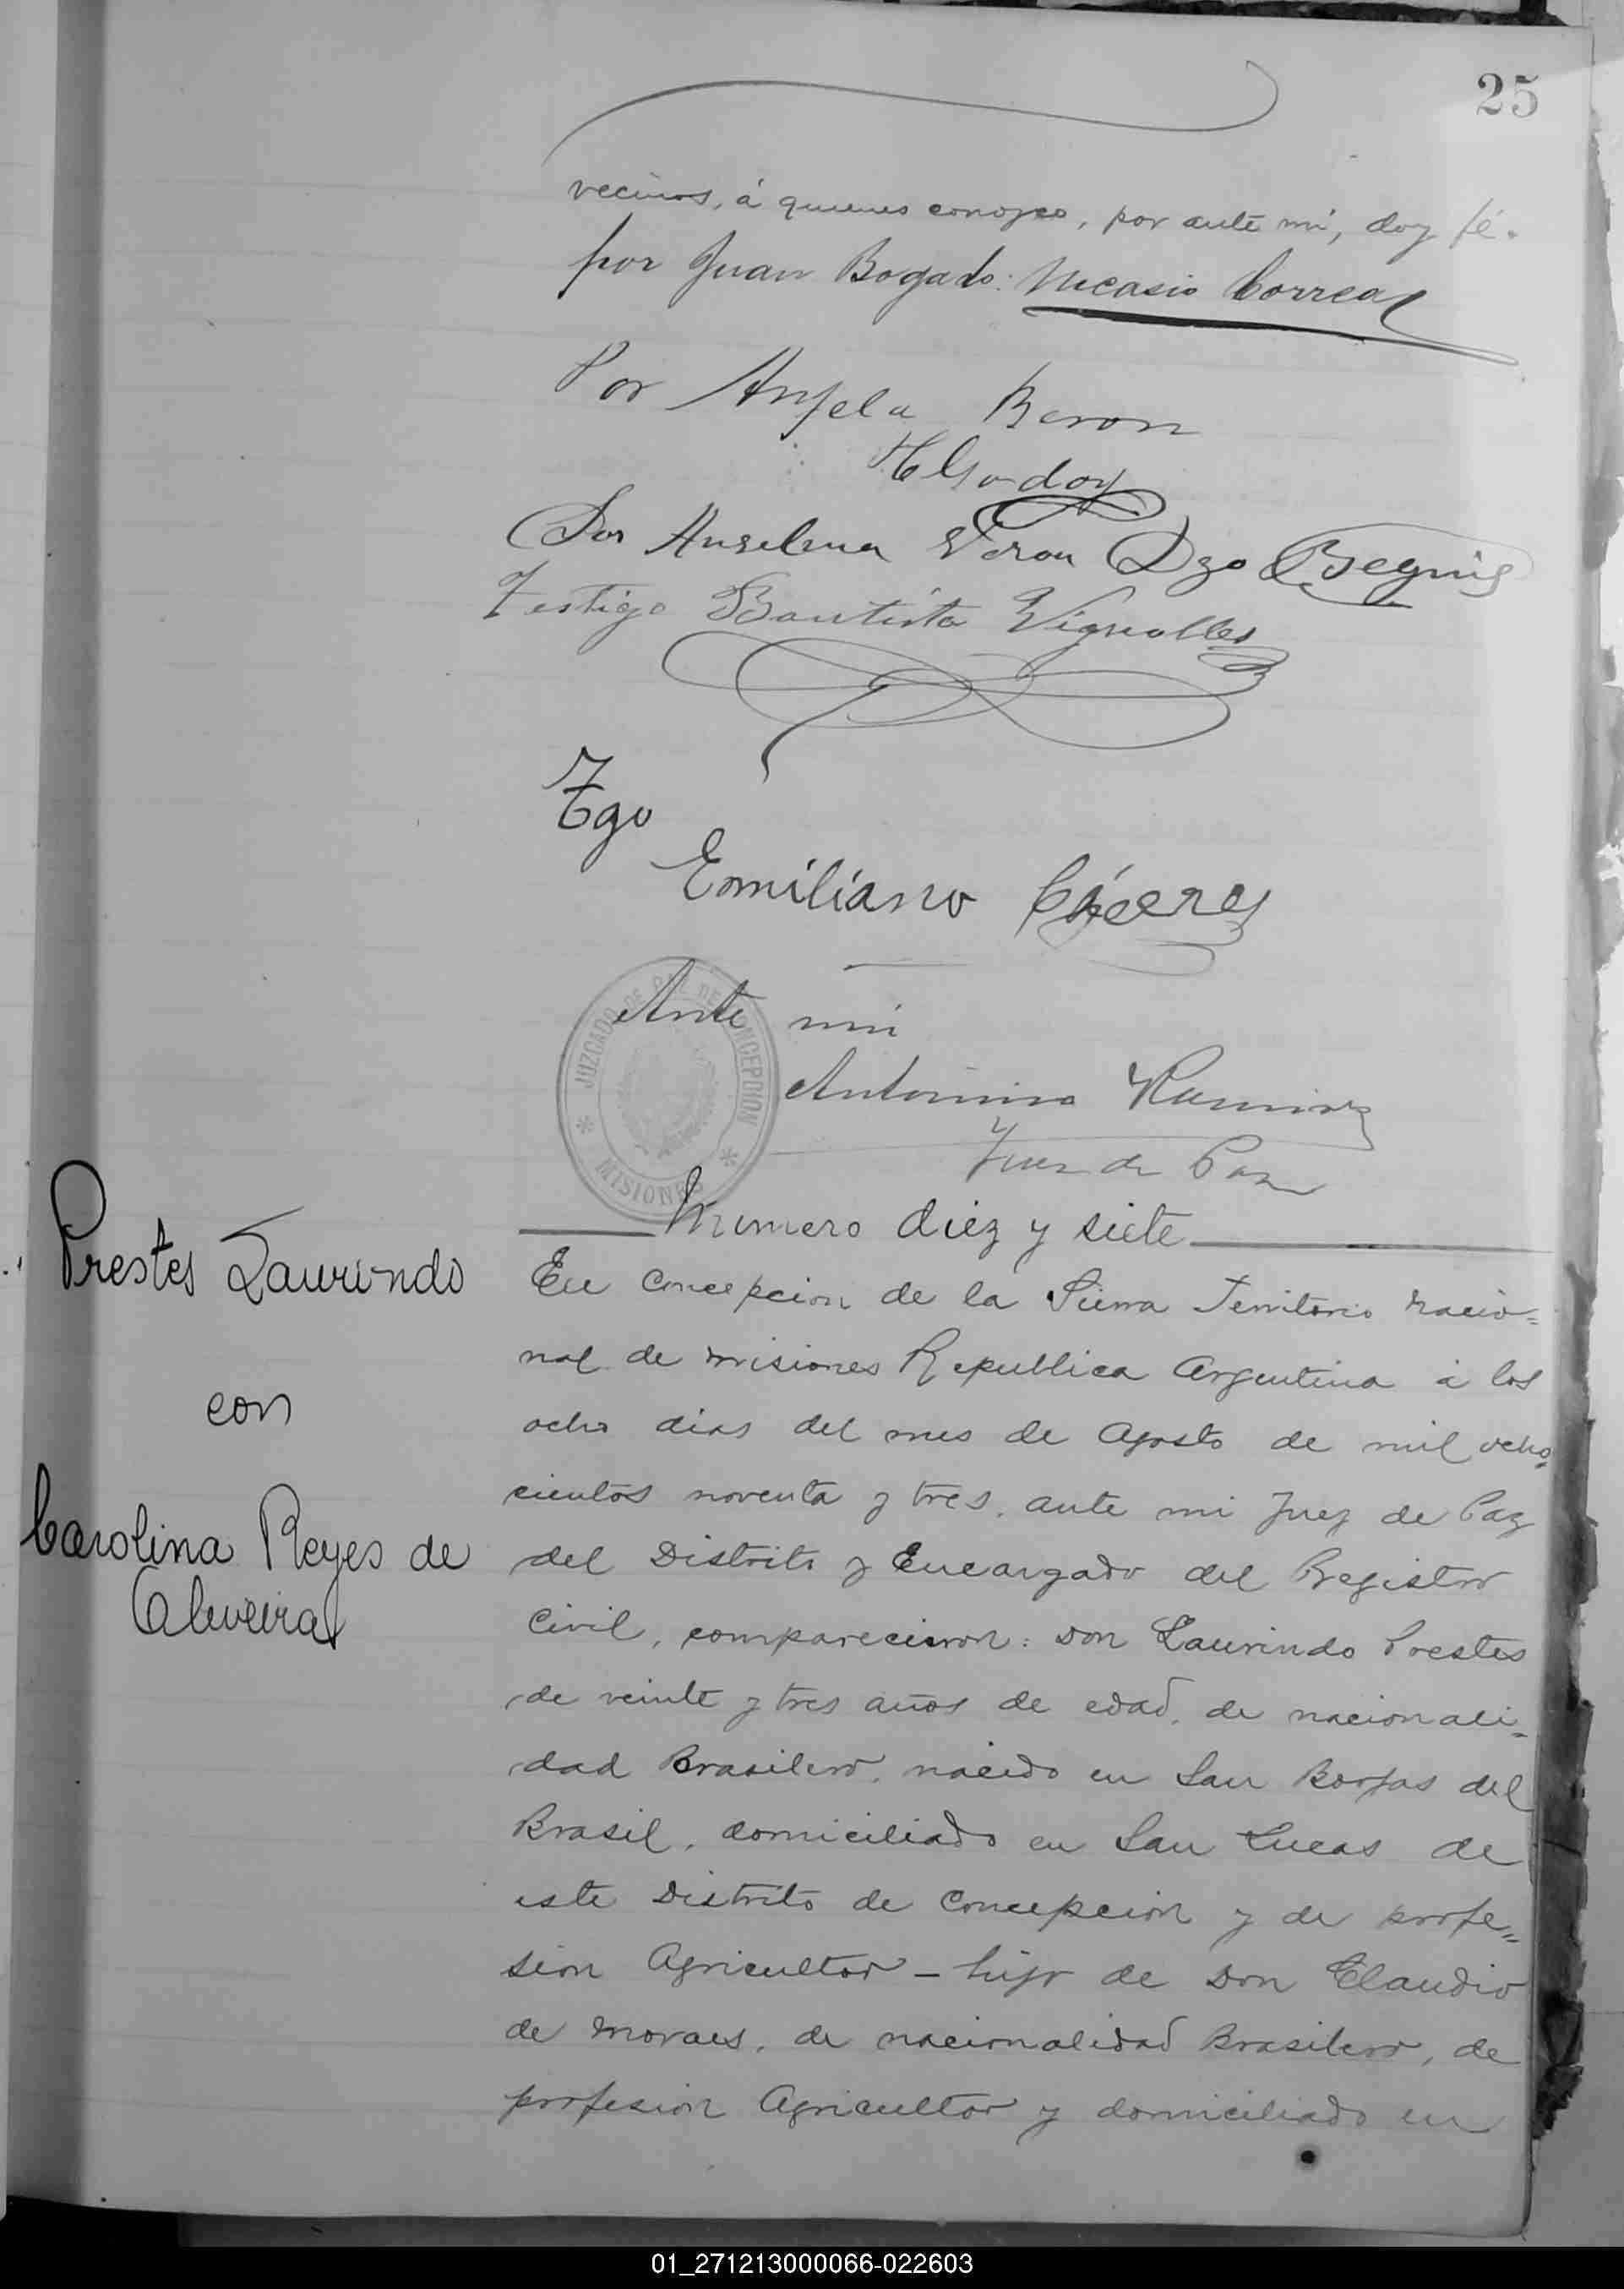 25
vecinos, á quienes conozco, por ante mi, doy fé.
por Juan Bogado: Nicasio Correa
Por Anjela Beron
H Godoy
Por Anselma Veron Dgo Begnis
Testigo Bautista Vignolles
Tgo
Emiliano Cáceres
JUZGADO DE PAZ DE CONCEPCION
* MISIONES *
Ante mi
Antonino Ramirez
Juez de Paz
Numero diez y siete
Prestes Laurindo
con
Carolina Reyes de
Oliveira
En Concepcion de la Sierra Territorio nacio=
nal de misiones Republica Argentina á los
ocho dias del mes de Agosto de mil ocho=
cientos noventa y tres, ante mi Juez de Paz
del Distrito y Encargado del Registro
Civil, comparecieron: Don Laurindo Prestes
de veinte y tres años de edad, de nacionali=
dad Brasilero, nacido en San Borjas del
Brasil, domiciliado en San Lucas de
este Distrito de Concepcion y de profe=
sion Agricultor - hijo de Don Claudio
de Moraes, de nacionalidad Brasilero, de
profesion Agricultor y domiciliado en
01_271213000066-022603